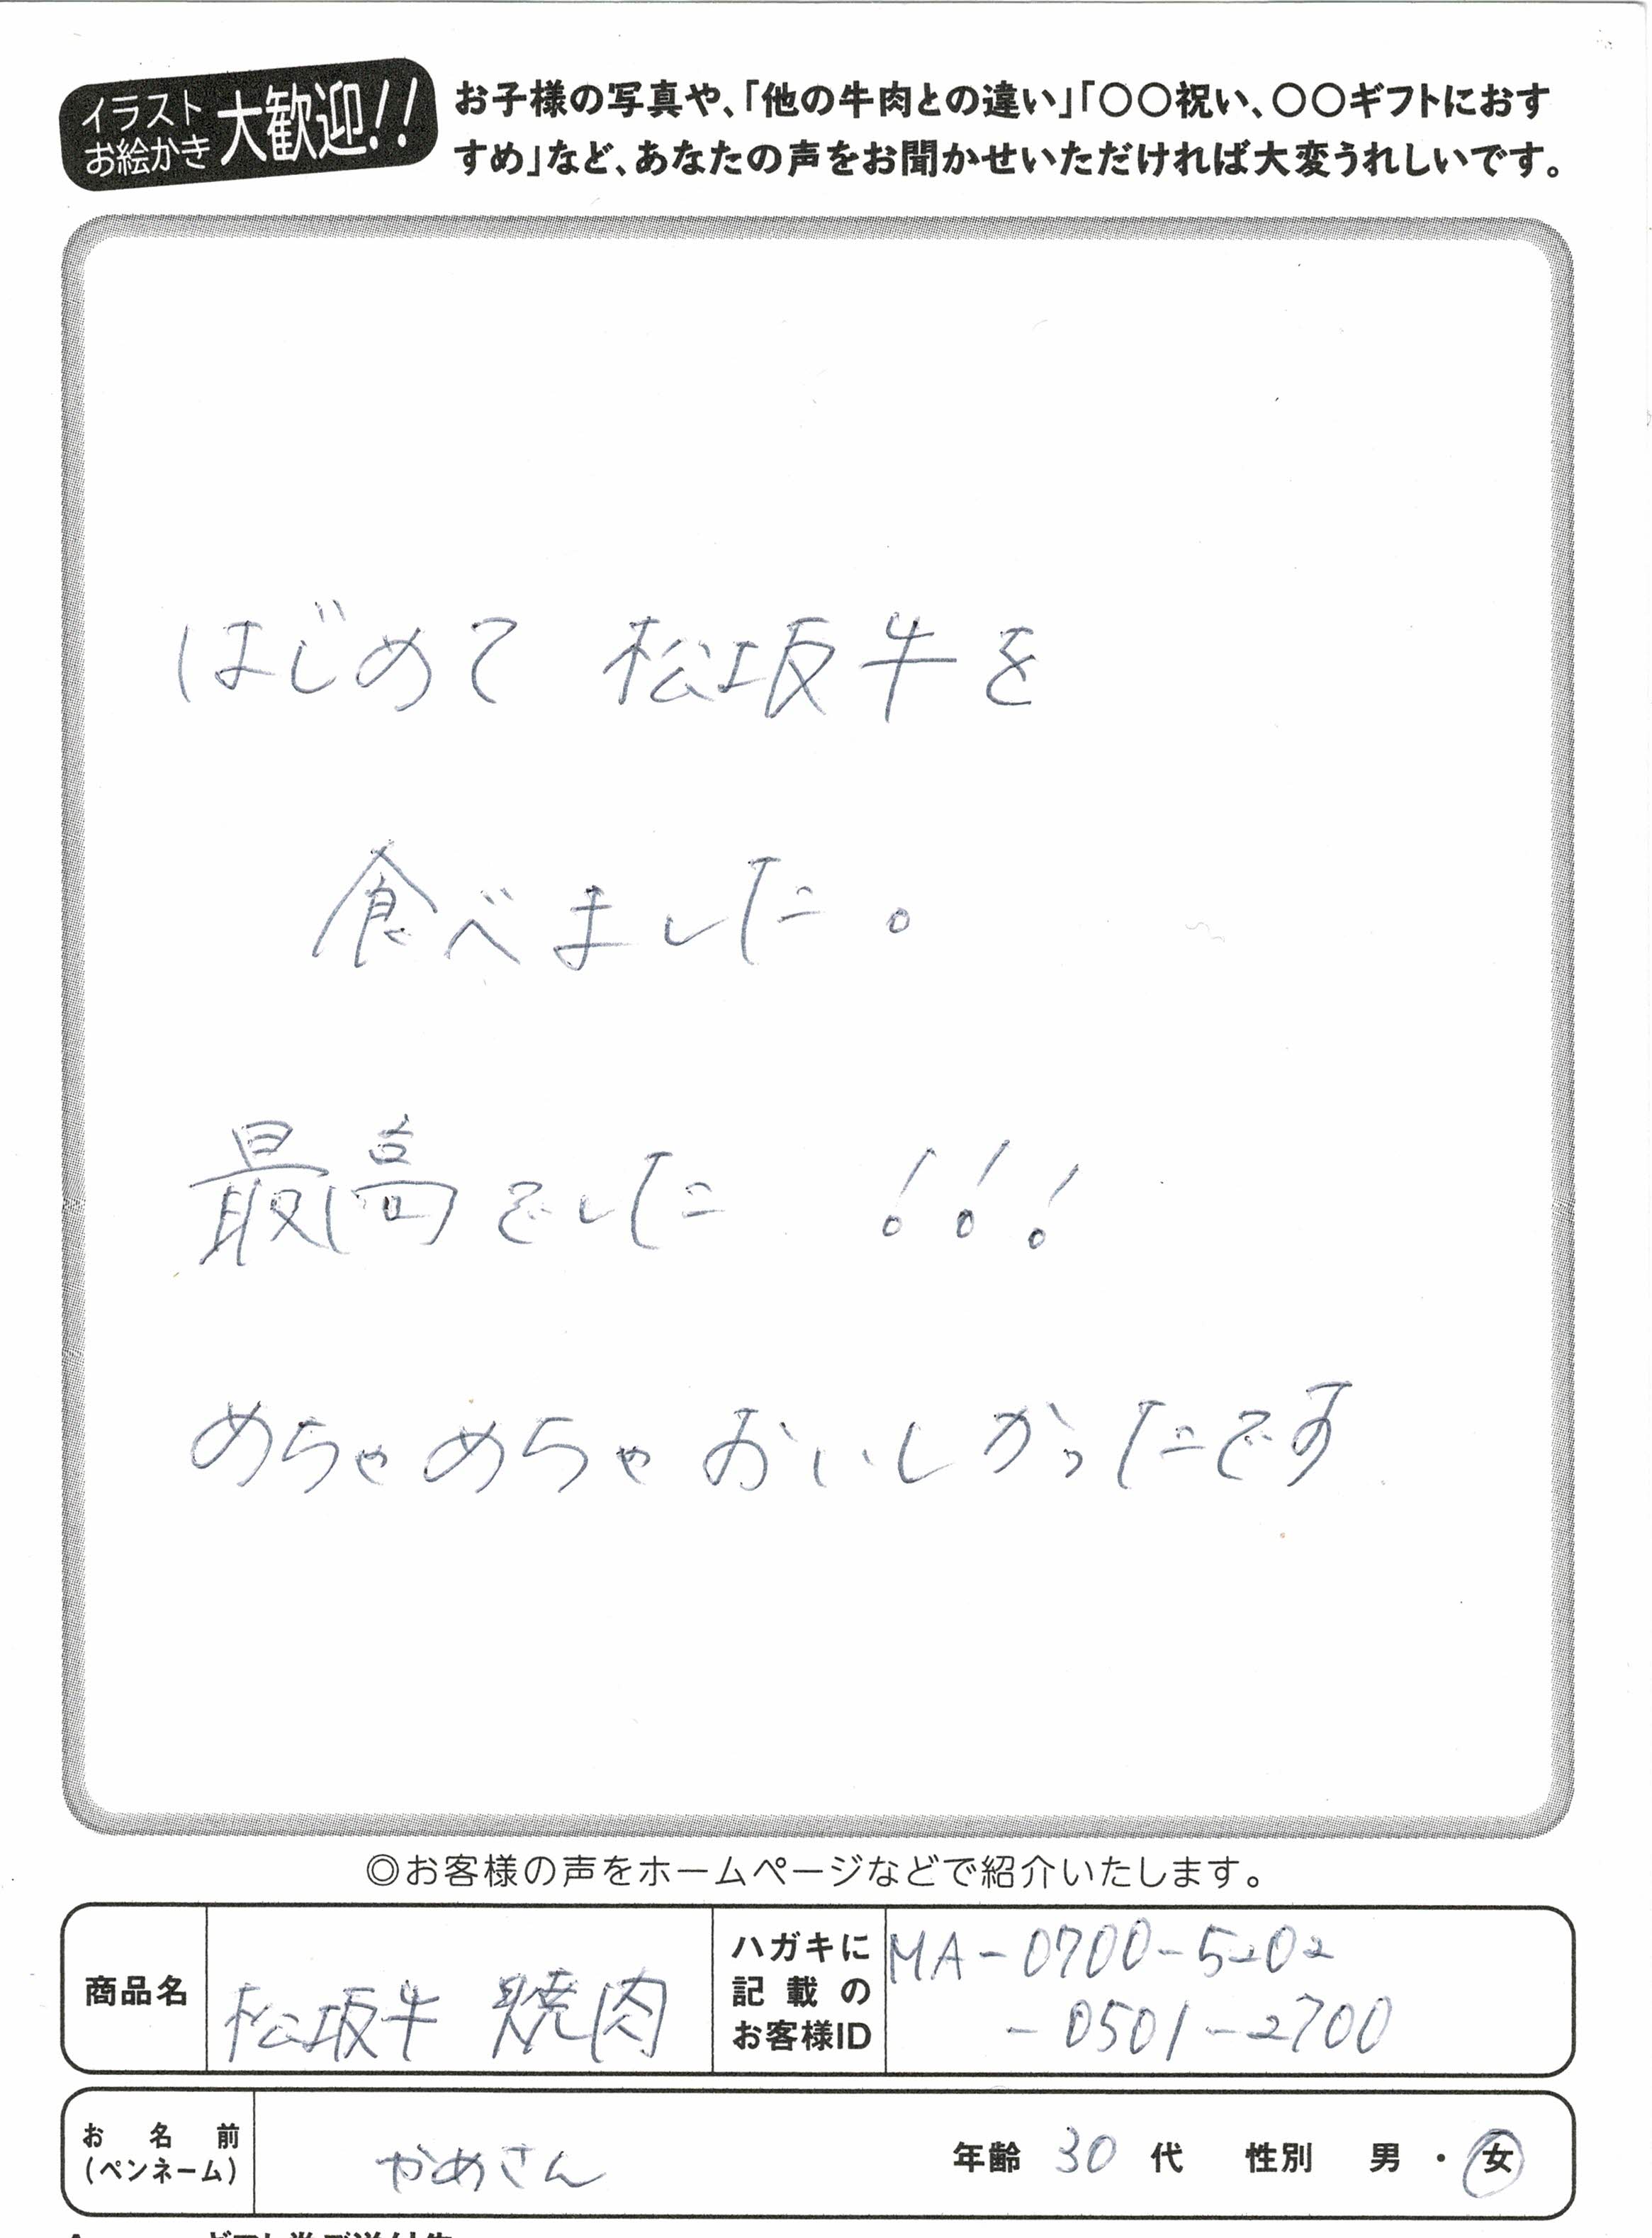 イラスト
お絵かき
大歓迎!!
お子様の写真や、「他の牛肉との違い」「〇〇祝い、〇〇ギフトにおす
すめ」など、あなたの声をお聞かせいただければ大変うれしいです。
はじめて 松坂牛を
食べました。
最高でした !!!
めちゃめちゃおいしかったです
◎お客様の声をホームページなどで紹介いたします。
商品名
松坂牛 焼肉
ハガキに
記載の
お客様ID
MA-0700-5202
-0501-2700
お名前
(ペンネーム)
かめさん
年齢 30 代 性別 男・女